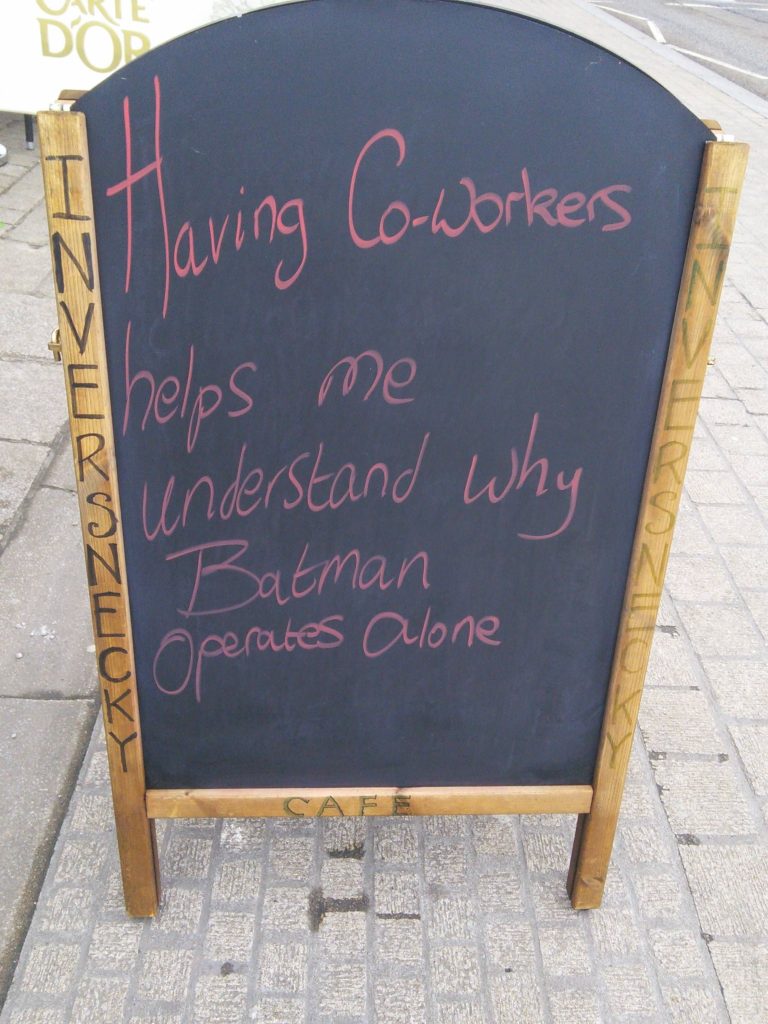 CARTE
D'OR
INVERSNECKY
Having Co-workers
helps me
understand why
Batman
Operates alone
INVERSNECKY
CAFE